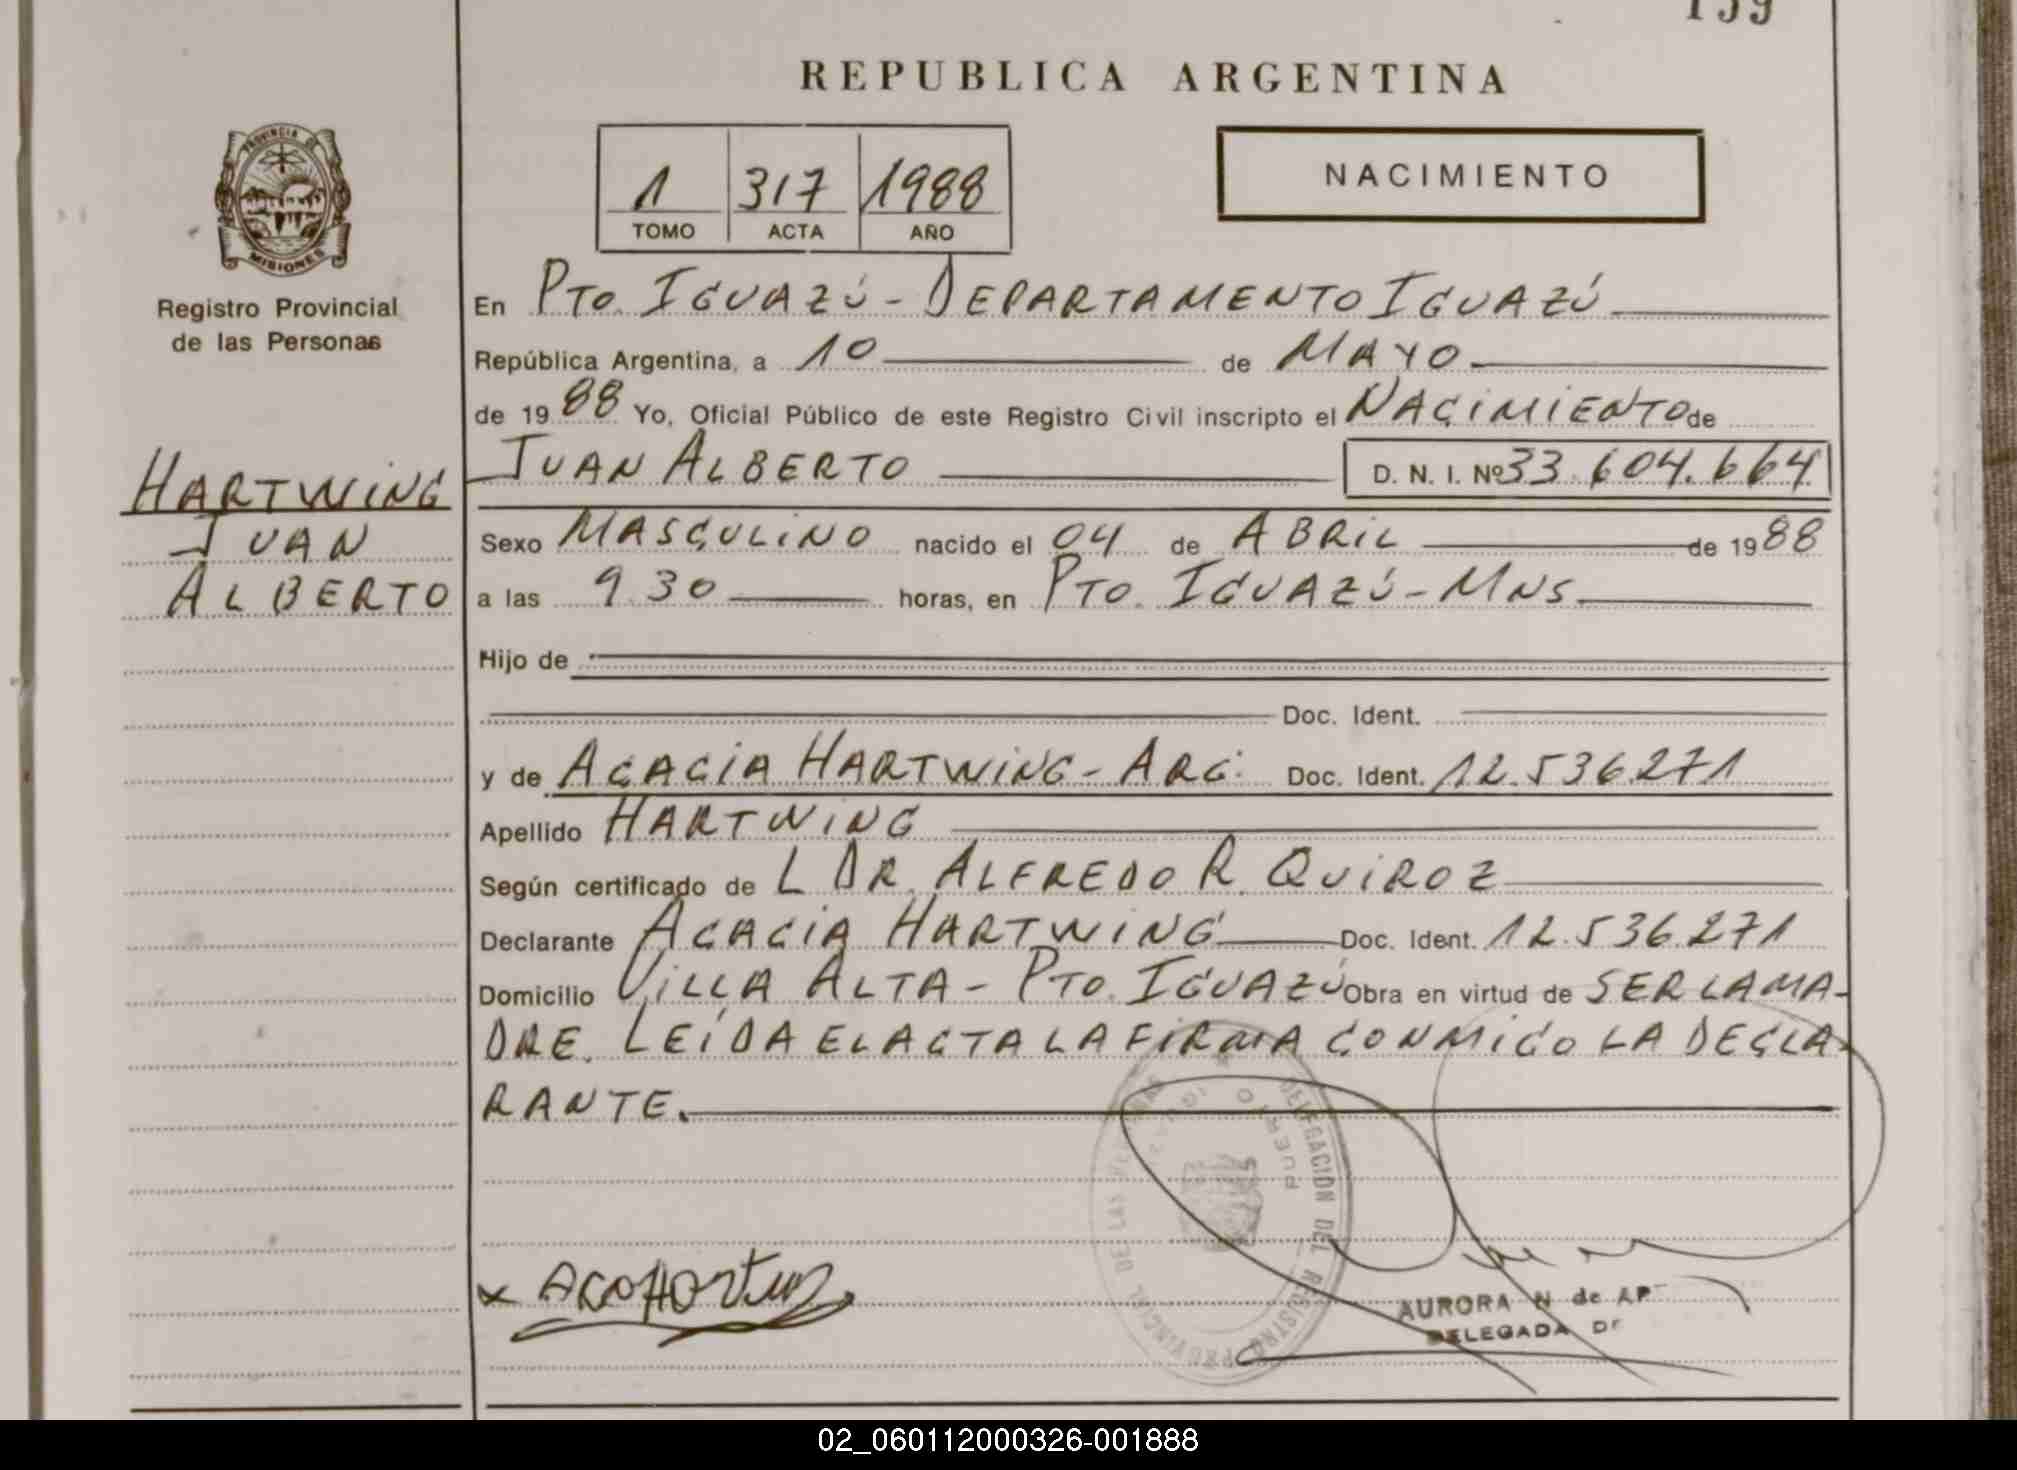 159
REPUBLICA ARGENTINA
PROVINCIA DE
MISIONES
Registro Provincial
de las Personas
1 317 1988
TOMO ACTA AÑO
NACIMIENTO
En PTO. IGUAZÚ - DEPARTAMENTO IGUAZÚ
República Argentina, a 10 de MAYO
de 1988 Yo, Oficial Público de este Registro Civil inscripto el NACIMIENTO de
JUAN ALBERTO D. N. I. Nº 33.604.664
HARTWING
JUAN
ALBERTO
Sexo MASCULINO nacido el 04 de ABRIL de 1988
a las 9.30 horas, en PTO. IGUAZÚ - MNS
Hijo de
Doc. Ident.
y de ACACIA HARTWING - ARG. Doc. Ident. 12.536.271
Apellido HARTWING
Según certificado de L DR. ALFREDO R. QUIROZ
Declarante ACACIA HARTWING Doc. Ident. 12.536.271
Domicilio VILLA ALTA - PTO. IGUAZÚ Obra en virtud de SER LA MA-
DRE. LEÍDA EL ACTA LA FIRMA CONMIGO LA DECLA-
RANTE.
DELEGACION DEL REGISTRO PROVINCIAL DE LAS PERSONAS
PUERTO IGUAZU
AURORA N de
DELEGADA DE
02_060112000326-001888